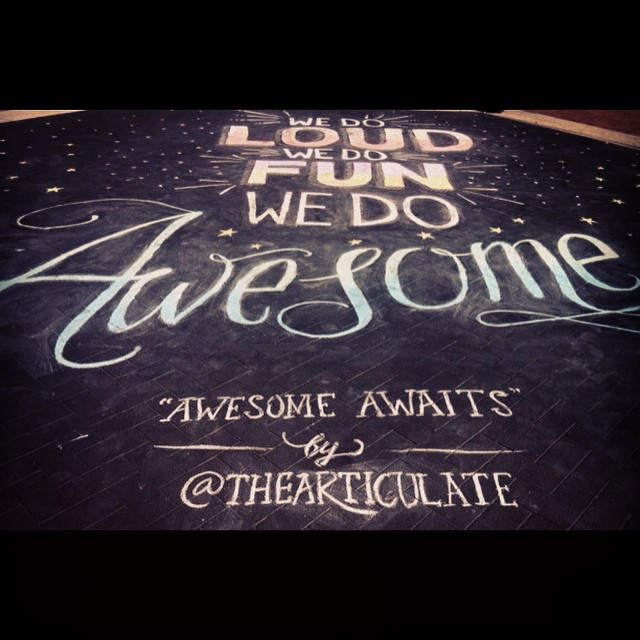 WE DO
LOUD
WE DO
FUN
WE DO
Awesome
"AWESOME AWAITS"
by
@THEARTICULATE